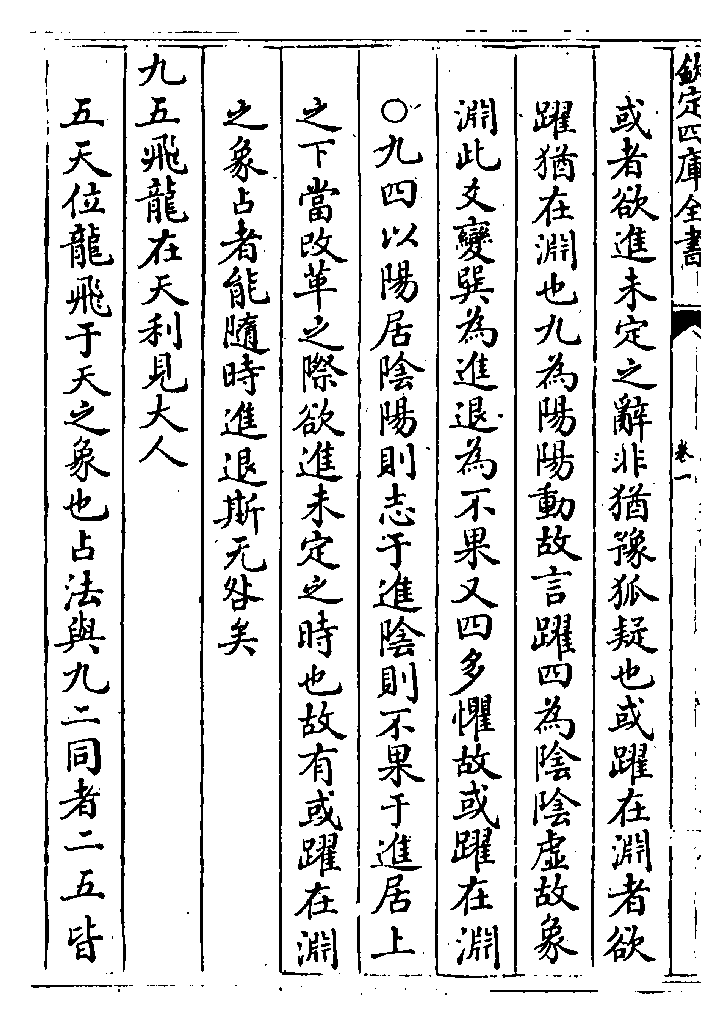 欽定四庫全書
卷一
或者欲進未定之辭非猶豫狐疑也或躍在淵者欲
躍猶在淵也九為陽陽動故言躍四為陰陰虛故象
淵此爻變巽為進退為不果又四多懼故或躍在淵
○九四以陽居陰陽則志于進陰則不果于進居上
之下當改革之際欲進未定之時也故有或躍在淵
之象占者能隨時進退斯无咎矣
九五飛龍在天利見大人
五天位龍飛于天之象也占法與九二同者二五皆